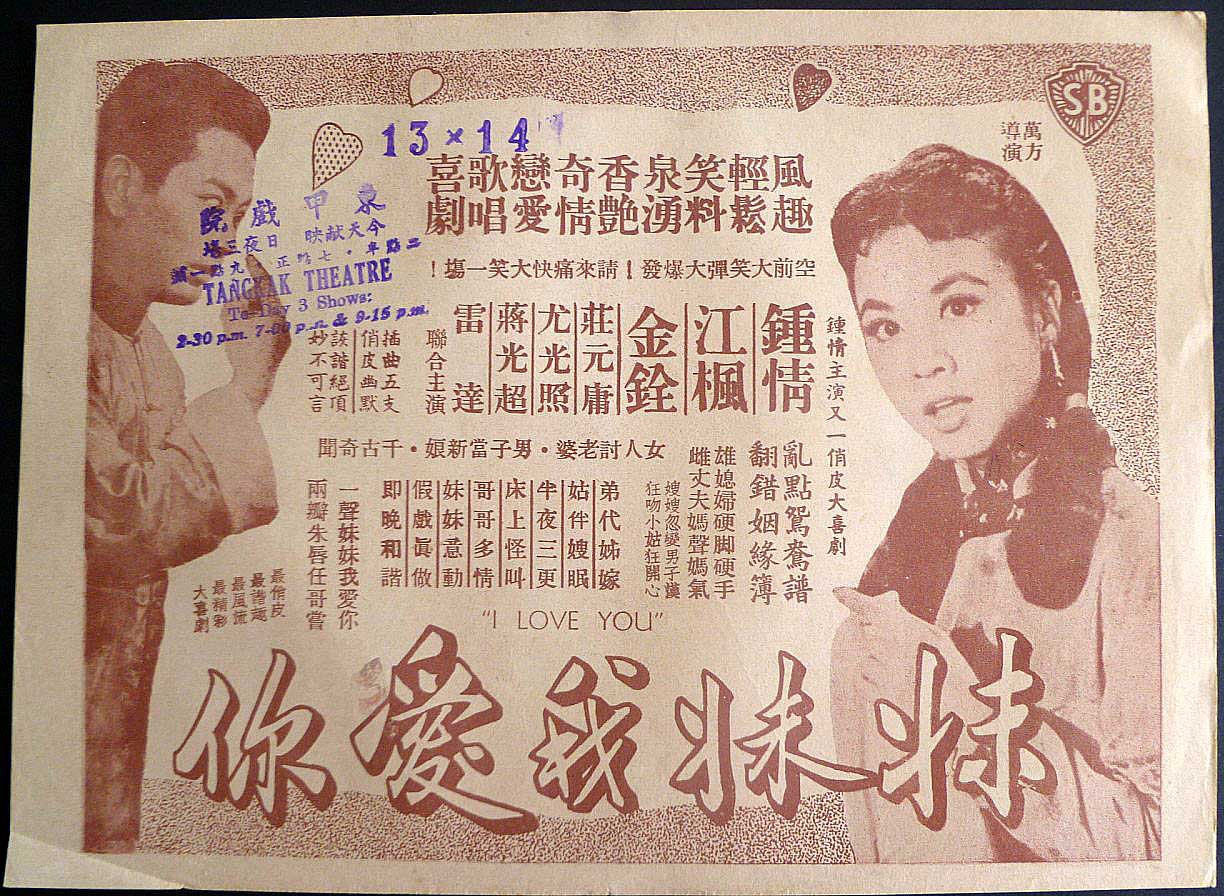 SB
萬方
導演
13 × 14
風趣
輕鬆
笑料
泉湧
香艷
奇情
戀愛
歌唱
喜劇
東甲戲院
今天献映 日夜三場
二點半·七點正
TANGKAK THEATRE
To-Day 3 Shows:
2-30 p.m. 7-00 p.m. & 9-15 p.m.
空前大笑彈大爆發!請來痛快大笑一塲!
鍾情主演又一俏皮大喜劇
鍾情
江楓
金銓
莊元庸
尤光照
蔣光超
雷達
聯合主演
插曲五支
俏皮幽默
詼諧絕頂
妙不可言
女人討老婆·男子當新娘·千古奇聞
亂點鴛鴦譜
翻錯姻緣簿
雄媳婦硬脚硬手
雌丈夫媽聲媽氣
嫂嫂忽變男子漢
狂吻小姑狂開心
弟代姊嫁
姑伴嫂眠
半夜三更
床上怪叫
哥哥多情
妹妹意動
假戲眞做
即晚和諧
一聲妹妹我愛你
兩瓣朱唇任哥嘗
最俏皮
最諧趣
最風流
最精彩
大喜劇
"I LOVE YOU"
妹妹我愛你